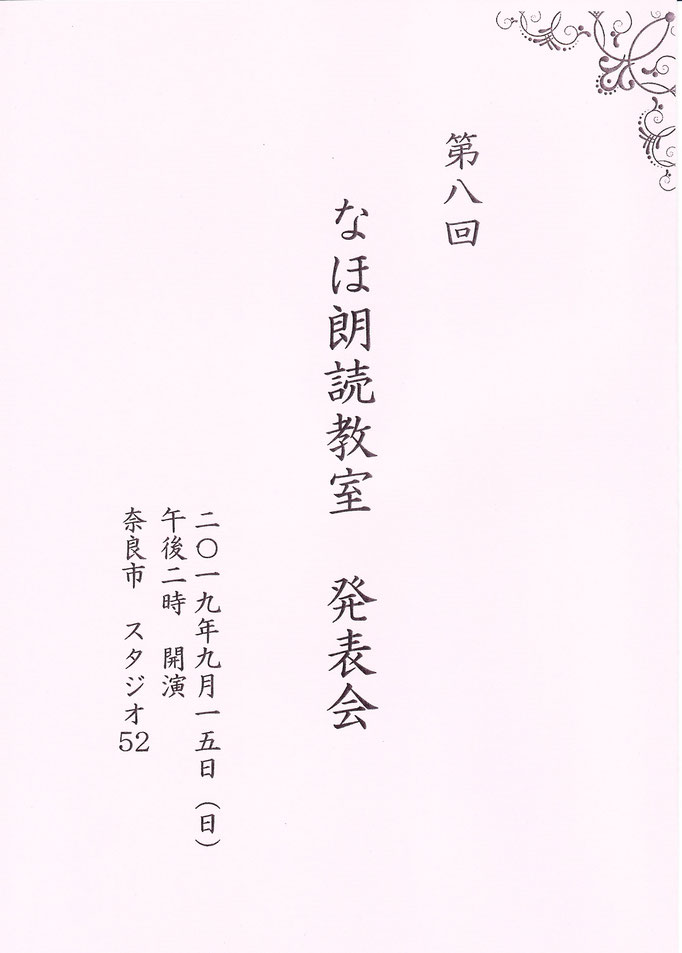 第八回
なほ朗読教室　発表会
二〇一九年九月一五日（日）
午後二時　開演
奈良市　スタジオ52